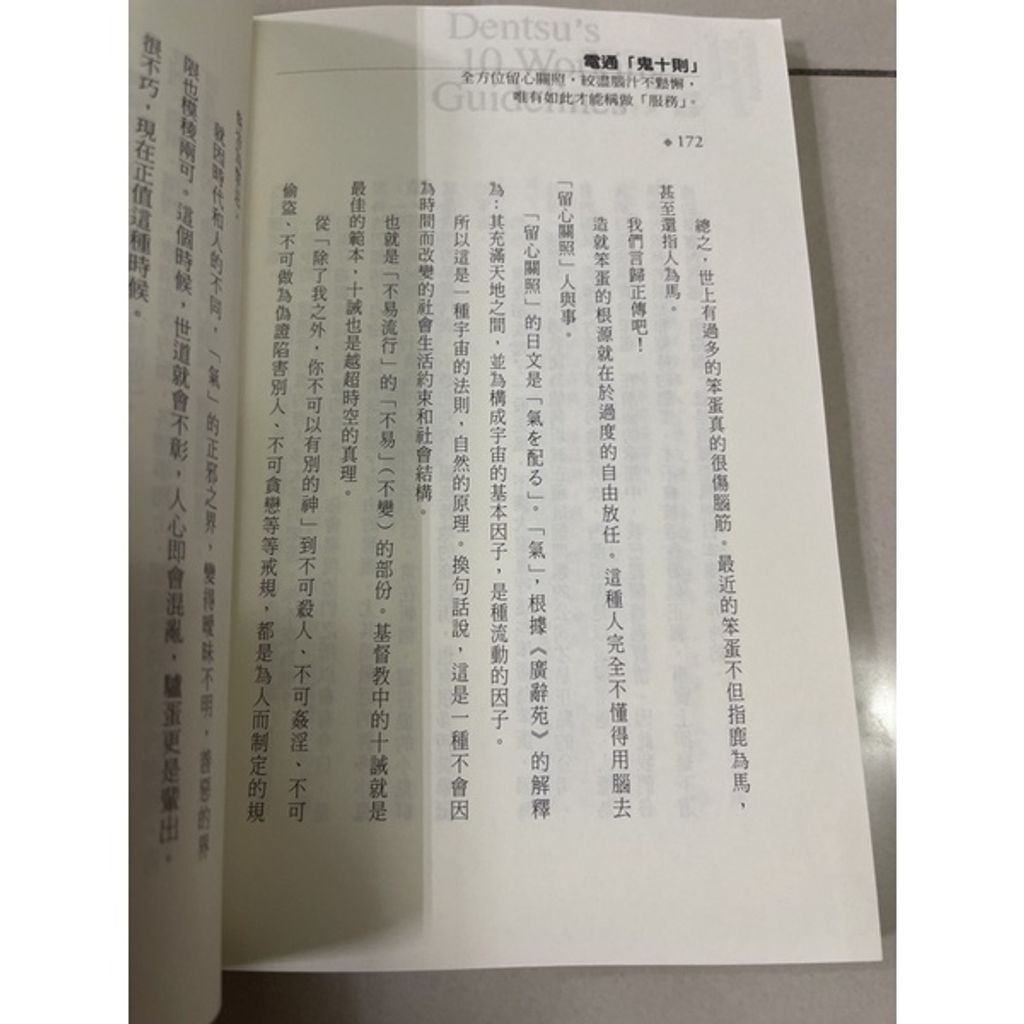 Dentsu's
10 Wo
Guidelines
電通「鬼十則」
全方位留心關照，絞盡腦汁不鬆懈，
唯有如此才能稱做「服務」。
◆172
總之，世上有過多的笨蛋真的很傷腦筋。最近的笨蛋不但指鹿為馬，
甚至還指人為馬。
我們言歸正傳吧！
造就笨蛋的根源就在於過度的自由放任。這種人完全不懂得用腦去
「留心關照」人與事。
「留心關照」的日文是「氣を配る」。「氣」，根據《廣辭苑》的解釋
為：其充滿天地之間，並為構成宇宙的基本因子，是種流動的因子。
所以這是一種宇宙的法則，自然的原理。換句話說，這是一種不會因
為時間而改變的社會生活約束和社會結構。
也就是「不易流行」的「不易」（不變）的部份。基督教中的十誡就是
最佳的範本，十誡也是越超時空的真理。
從「除了我之外，你不可以有別的神」到不可殺人、不可姦淫、不可
偷盜、不可做為偽證陷害別人、不可貪戀等等戒規，都是為人而制定的規
就因時代和人的不同，「氣」的正邪之界，變得曖昧不明，善惡的界
限也模稜兩可。這個時候，世道就會不彰，人心即會混亂，驢蛋更是輩出。
很不巧，現在正值這種時候。